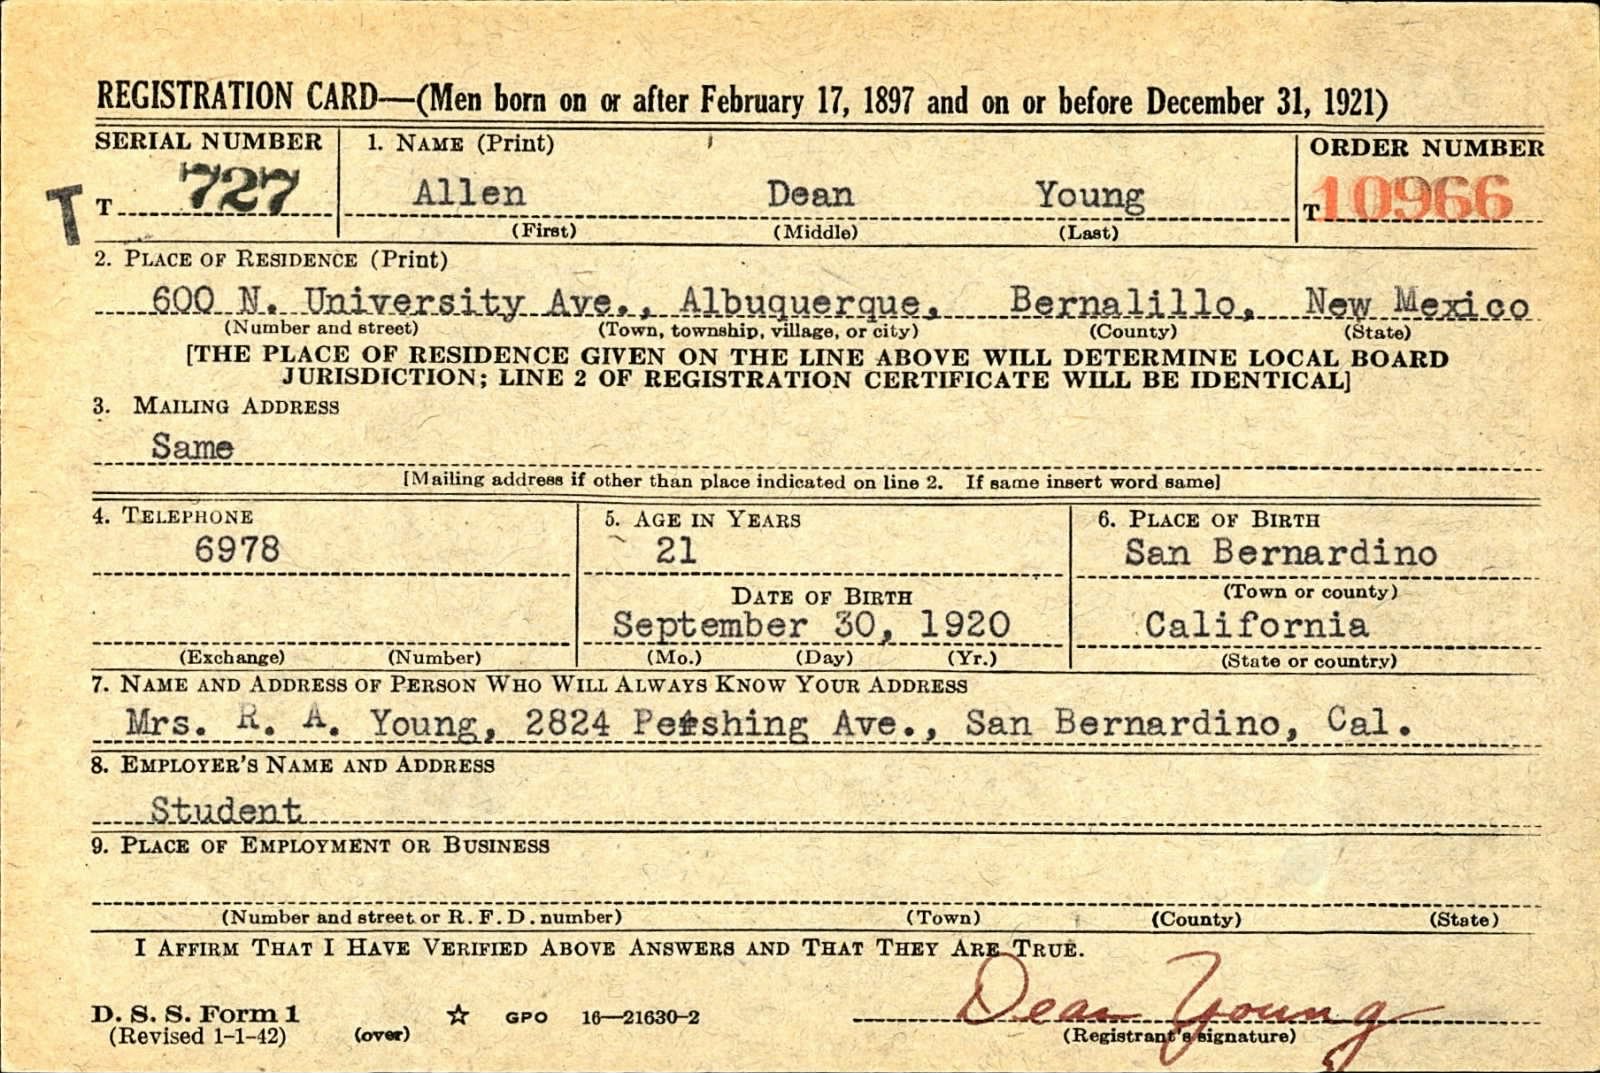 REGISTRATION CARD—(Men born on or after February 17, 1897 and on or before December 31, 1921)
SERIAL NUMBER 1. NAME (Print) ORDER NUMBER
T T 727 Allen Dean Young T 10966
(First) (Middle) (Last)
2. PLACE OF RESIDENCE (Print)
600 N. University Ave., Albuquerque, Bernalillo, New Mexico
(Number and street) (Town, township, village, or city) (County) (State)
[THE PLACE OF RESIDENCE GIVEN ON THE LINE ABOVE WILL DETERMINE LOCAL BOARD
JURISDICTION; LINE 2 OF REGISTRATION CERTIFICATE WILL BE IDENTICAL]
3. MAILING ADDRESS
Same
[Mailing address if other than place indicated on line 2. If same insert word same]
4. TELEPHONE 5. AGE IN YEARS 6. PLACE OF BIRTH
6978 21 San Bernardino
(Town or county)
DATE OF BIRTH
September 30, 1920 California
(Exchange) (Number) (Mo.) (Day) (Yr.) (State or country)
7. NAME AND ADDRESS OF PERSON WHO WILL ALWAYS KNOW YOUR ADDRESS
Mrs. R. A. Young, 2824 Pershing Ave., San Bernardino, Cal.
8. EMPLOYER'S NAME AND ADDRESS
Student
9. PLACE OF EMPLOYMENT OR BUSINESS
(Number and street or R. F. D. number) (Town) (County) (State)
I AFFIRM THAT I HAVE VERIFIED ABOVE ANSWERS AND THAT THEY ARE TRUE.
Dean Young
D. S. S. Form 1 GPO 16—21630-2
(Revised 1-1-42) (over) (Registrant's signature)